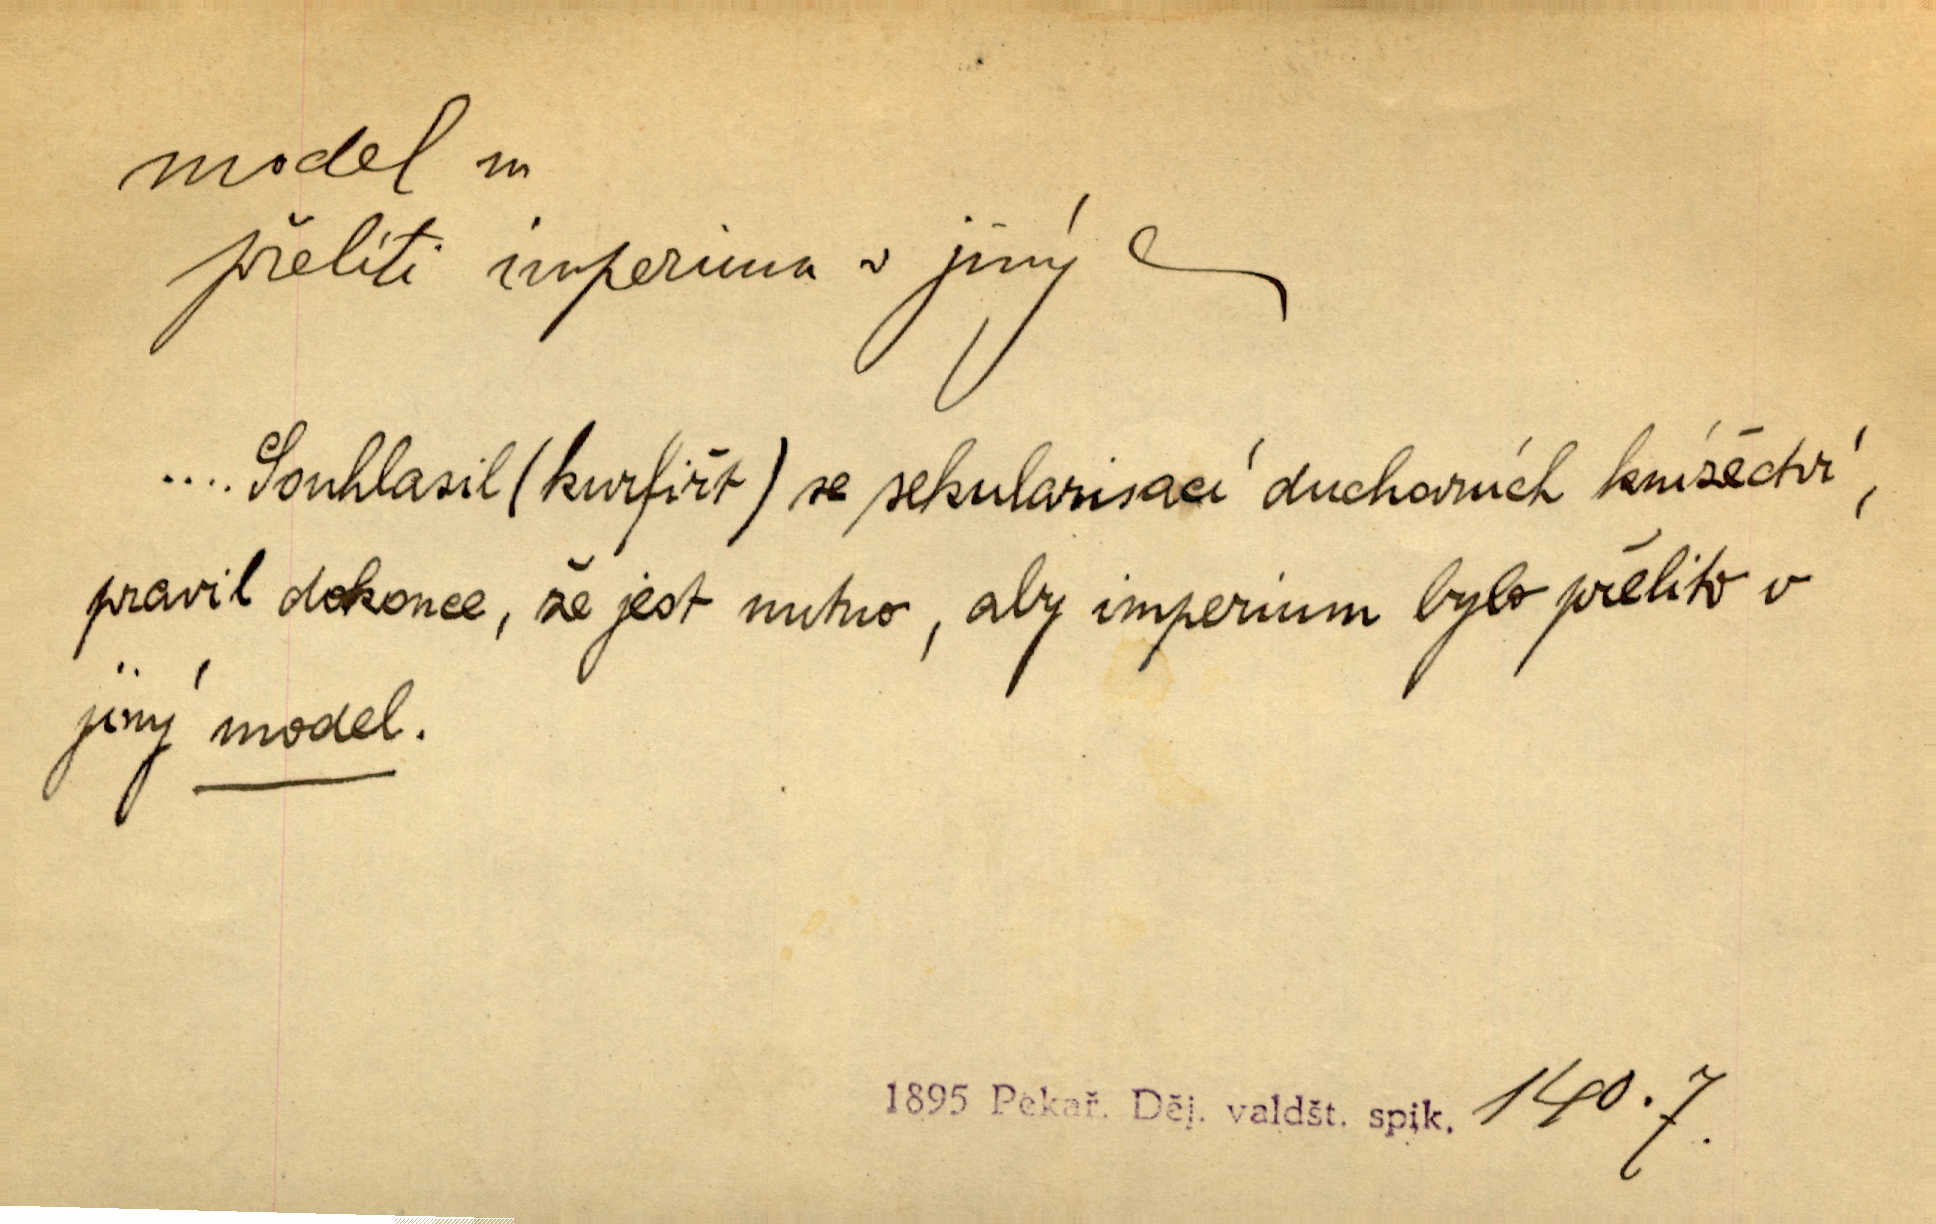 model m
přelíti imperium v jiný
.... Souhlasil (kurfiřt) se sekularisací duchovních knížectví,
pravil dokonce, že jest nutno, aby imperium bylo přelito v
jiný model.
1895 Pekař. Děj. valdšt. spik. 140.7.